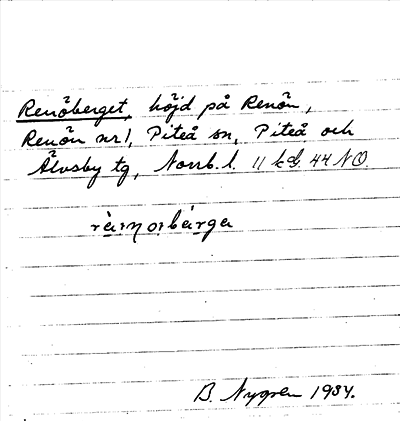 Renöberget, höjd på Renön,
Renön nr 1, Piteå sn, Piteå och
Älvsby tg, Norrb. l. 44 NO.
B. Nygren 1934.